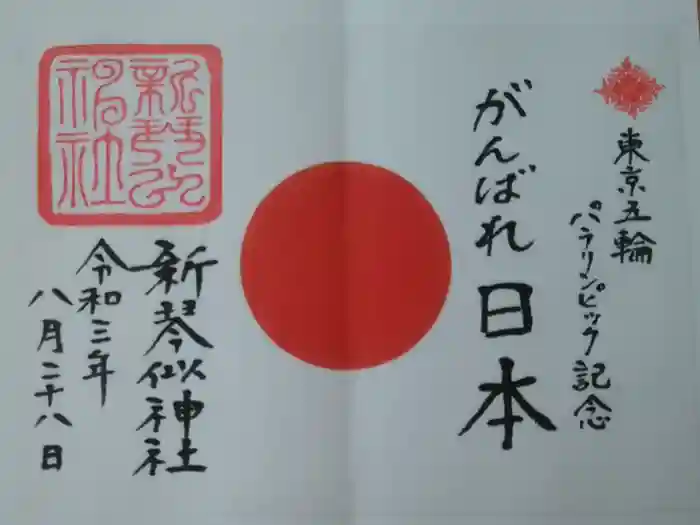 東京五輪
パラリンピック記念
がんばれ日本
新琴似神社
令和三年
八月二十八日